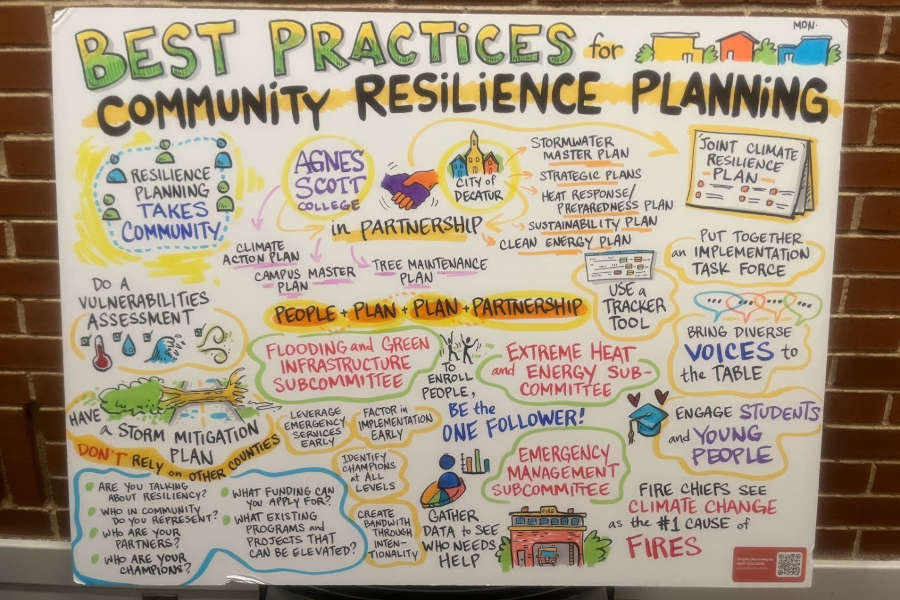 BEST PRACTICES for
MON.
COMMUNITY RESILIENCE PLANNING
RESILIENCE
PLANNING
TAKES
COMMUNITY
AGNES
SCOTT
COLLEGE
CITY of
DECATUR
in PARTNERSHIP
STORMWATER
MASTER PLAN
STRATEGIC PLANS
HEAT RESPONSE/
PREPAREDNESS PLAN
SUSTAINABILITY PLAN
CLEAN ENERGY PLAN
JOINT CLIMATE
RESILIENCE
PLAN
CLIMATE
ACTION PLAN
CAMPUS MASTER
PLAN
TREE MAINTENANCE
PLAN
PUT TOGETHER
an IMPLEMENTATION
TASK FORCE
DO A
VULNERABILITIES
ASSESSMENT
PEOPLE + PLAN + PLAN + PARTNERSHIP
USE a
TRACKER
TOOL
BRING DIVERSE
VOICES to
the TABLE
FLOODING and GREEN
INFRASTRUCTURE
SUBCOMMITTEE
TO
ENROLL
PEOPLE,
BE the
ONE FOLLOWER!
EXTREME HEAT
and ENERGY SUB-
COMMITTEE
HAVE
a STORM MITIGATION
PLAN
DON'T RELY on OTHER COUNTIES
LEVERAGE
EMERGENCY
SERVICES
EARLY
FACTOR in
IMPLEMENTATION
EARLY
ENGAGE STUDENTS
and YOUNG
PEOPLE
IDENTIFY
CHAMPIONS
at ALL
LEVELS
EMERGENCY
MANAGEMENT
SUBCOMMITTEE
ARE YOU TALKING
ABOUT RESILIENCY?
WHO IN COMMUNITY
DO YOU REPRESENT?
WHO ARE YOUR
PARTNERS?
WHO ARE YOUR
CHAMPIONS?
WHAT FUNDING CAN
YOU APPLY FOR?
WHAT EXISTING
PROGRAMS and
PROJECTS THAT
CAN BE ELEVATED?
CREATE
BANDWITH
THROUGH
INTEN-
TIONALITY
GATHER
DATA to SEE
WHO NEEDS
HELP
FIRE
FIRE CHIEFS SEE
CLIMATE CHANGE
as the #1 CAUSE of
FIRES